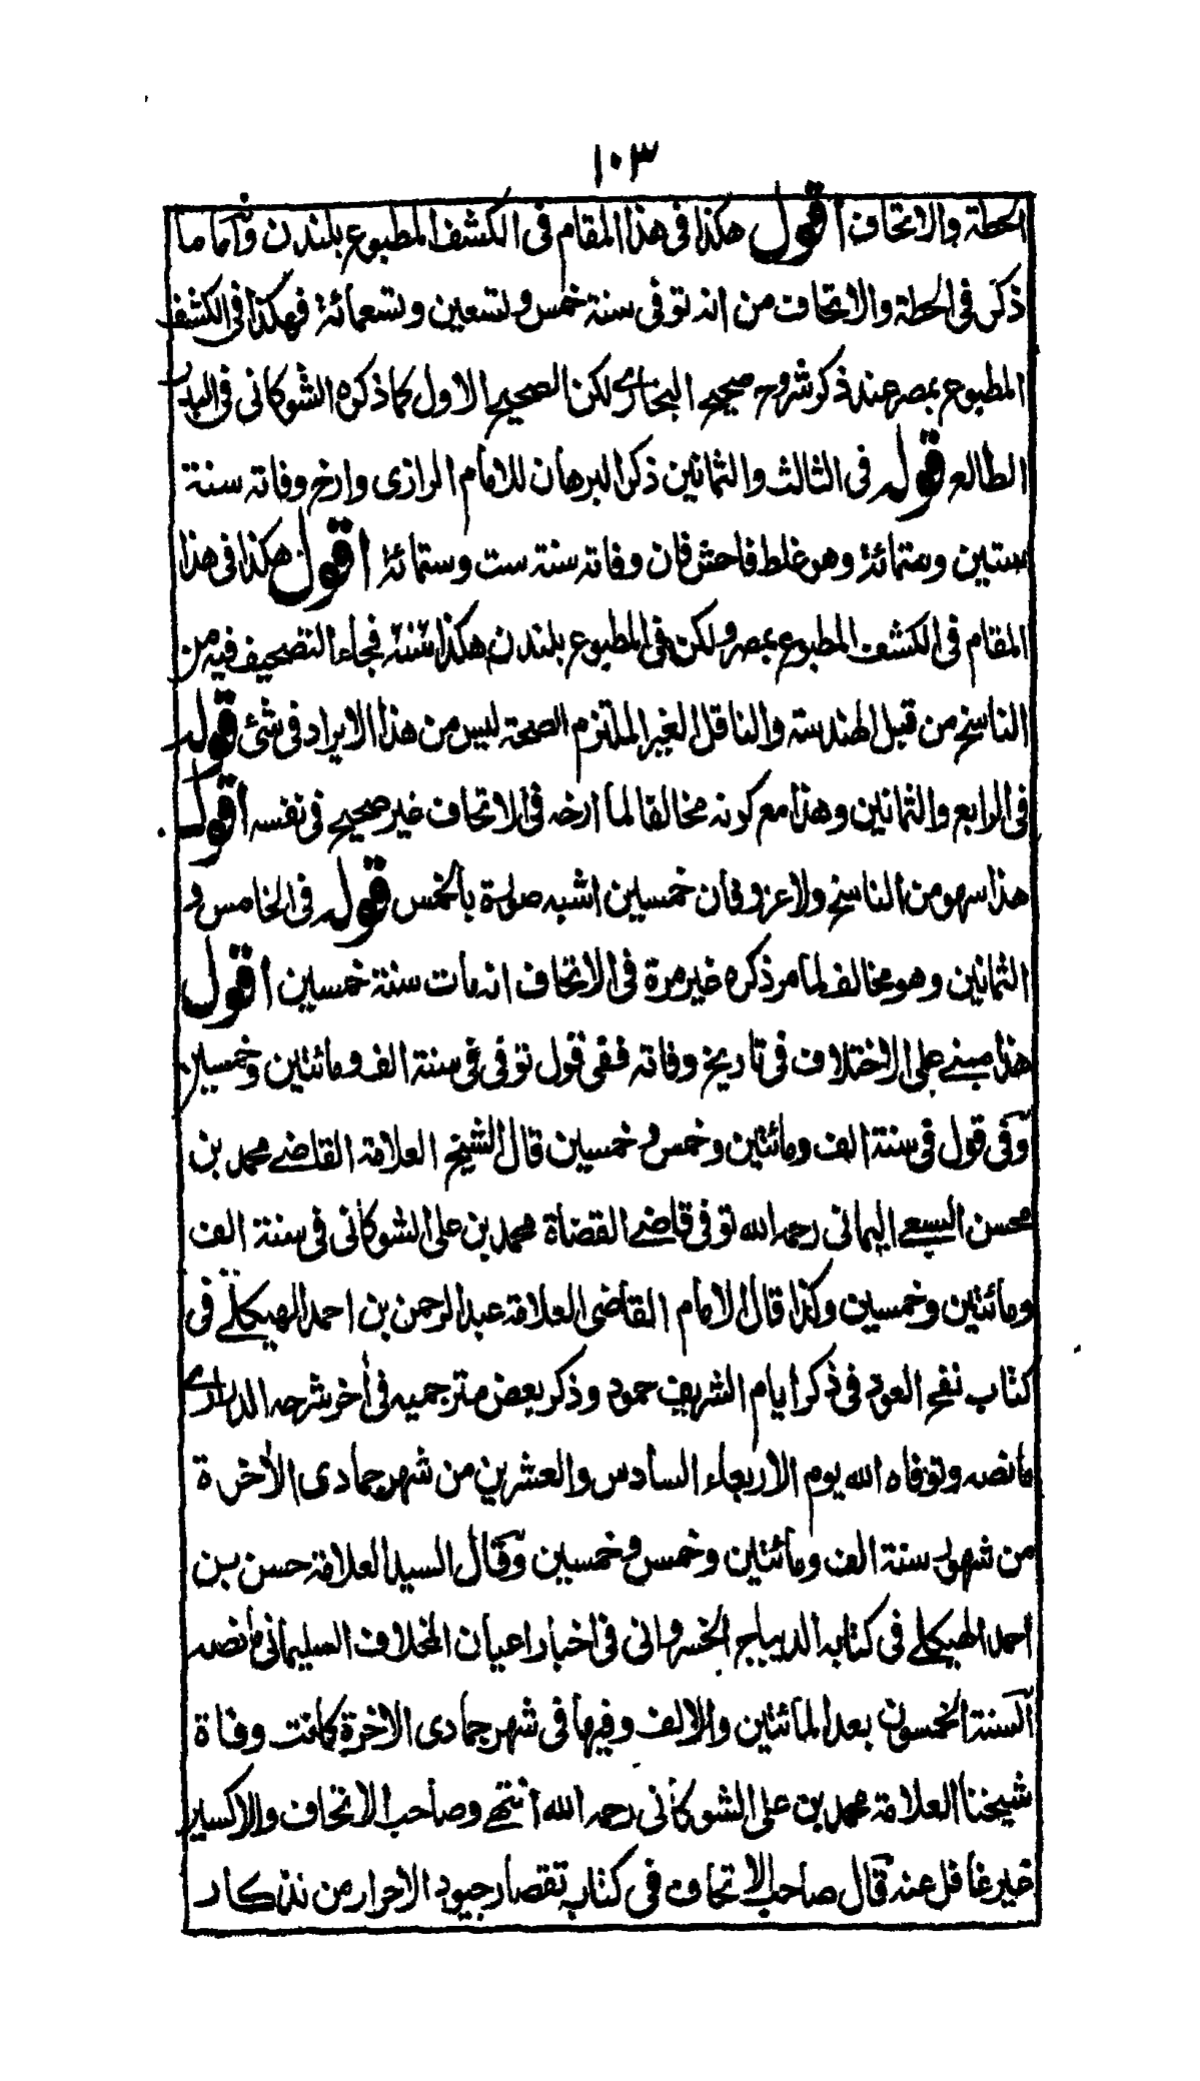 ١٠٣
الحطة والاتحاف اقول هكذا في هذا المقام في الكشف المطبوع بلندن وآما ما
ذكر في الحطة والاتحاف من انه توفي سنة خمس وتسعين وتسعمائة فهكذا في الكشف
المطبوع بمصر عند ذكر شروح صحيح البخاري لكن الصحيح الاول كما ذكره الشوكاني في البدر
الطالع قوله في الثالث والثمانين ذكر البرهان للامام الرازي وارخ وفاته سنة
ستين وستمائة وهو غلط فاحش فان وفاته سنة ست وستمائة اقول هكذا في هذا
المقام في الكشف المطبوع بمصر ولكن في المطبوع بلندن هكذا سنة فجاء التصحيف فيه من
الناسخ من قبل الهندسة والناقل الغير الملتزم الصحة ليس من هذا الايراد في شئ قوله
في الرابع والثمانين وهذا مع كونه مخالفا لما ارخه في الاتحاف غير صحيح في نفسه اقول
هذا سهو من الناسخ ولا غرو فان خمسين اشبه صورة بالخمس قوله في الخامس و
الثمانين وهو مخالف لما مر ذكره غير مرة في الاتحاف انه مات سنة خمسين اقول
هذا مبني على الاختلاف في تاريخ وفاته ففي قول توفي في سنة الف ومائتين وخمسين
وفي قول في سنة الف ومائتين وخمس وخمسين قال الشيخ العلامة القاضي محمد بن
محسن السبعي اليماني رحمه الله توفي قاضي القضاة محمد بن علي الشوكاني في سنة الف
ومائتين وخمسين وكذا قال الامام القاضي العلامة عبد الرحمن بن احمد الهيكلي في
كتاب نفح العود في ذكر ايام الشريف حمود وذكر بعض مترجميه في أخر شرحه الدراري
ما نصه وتوفاه الله يوم الاربعاء السادس والعشرين من شهر جمادى الأخرة
من شهور سنة الف ومائتين وخمس وخمسين وقال السيد العلامة حسن بن
احمد الهيكلي في كتابه الديباج الخسرواني في اخبار اعيان المخلاف السليماني ما نصه
السنة الخمسون بعد المائتين والالف وفيها في شهر جمادى الاخرة كانت وفاة
شيخنا العلامة محمد بن علي الشوكاني رحمه الله انتهى وصاحب الاتحاف والاكسير
غير غافل عنه قال صاحب الاتحاف في كتاب تقصار جيود الاحرار من تذكار